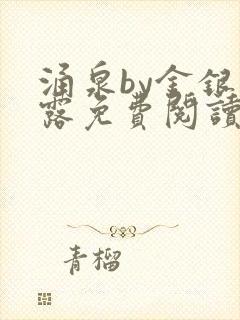 涌泉by金银
露免費閱讀
青榴